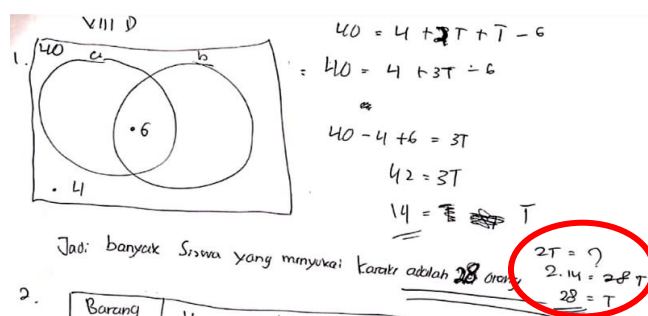 VIII D
1.
40
a
b
. 6
. 4
40 = 4 + 2T + T - 6
= 40 = 4 + 3T - 6
40 - 4 + 6 = 3T
42 = 3T
14 = T
Jadi banyak Siswa yang menyukai Karate adalah 28 orang
2T = ?
2.14 = 28 T
28 = T
2.
Barang